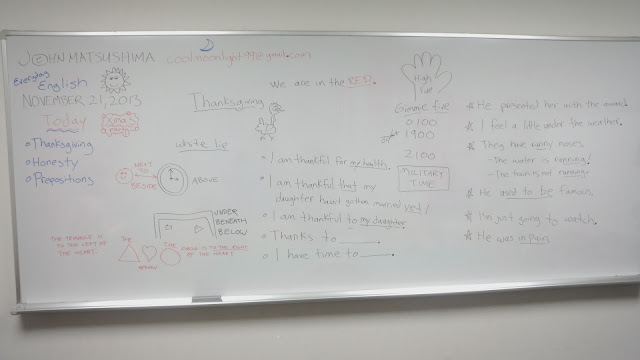 JOHN MATSUSHIMA
Everyday
English
NOVEMBER 21, 2013
Today
xmas
party
Thanksgiving
Honesty
Prepositions
NEXT TO
BESIDE
ABOVE
UNDER
BENEATH
BELOW
THE TRIANGLE IS
TO THE LEFT OF
THE HEART.
The
THE CIRCLE IS TO THE RIGHT
OF THE HEART
We are in the RED.
Thanksgiving
white lie
I am thankful for my health.
I am thankful that my
daughter hasn't gotten married yet!
I am thankful to my daughter.
Thanks to
I have time to
High
five
Gimme five
0100
1900
2100
MILITARY
TIME
He presented her with the award.
I feel a little under the weather.
They have runny noses.
- The water is running!
- The train is not running.
He used to be famous.
I'm just going to watch.
He was in pain.